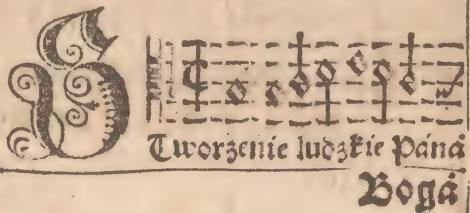 STworzenie ludzkie Páná
Bogá